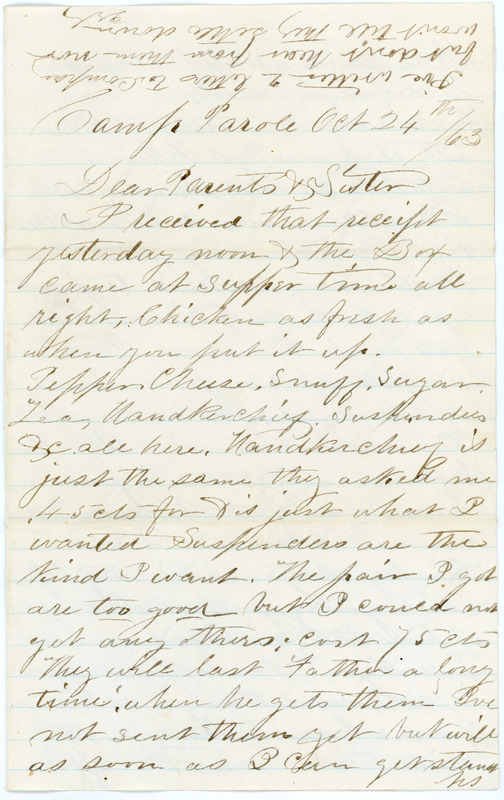 I've written 2 letters to Company
but don't hear from them nor
won't till they settle down
Camp Parole Oct 24th/63
Dear Parents & Sister
I received that receipt
yesterday noon & the Box
came at supper time all
right, Chicken as fresh as
when you put it up.
Pepper Cheese, Snuff, Sugar,
Tea, Handkerchief, Suspenders
&c all here. Handkerchief is
just the same they asked me
.45cts for & is just what I
wanted Suspenders are the
kind I want. The pair I got
are too good but I could not
get any others; cost 75 cts
They will last Father a long
time, when he gets them I've
not sent them yet but will
as soon as I can get stamps